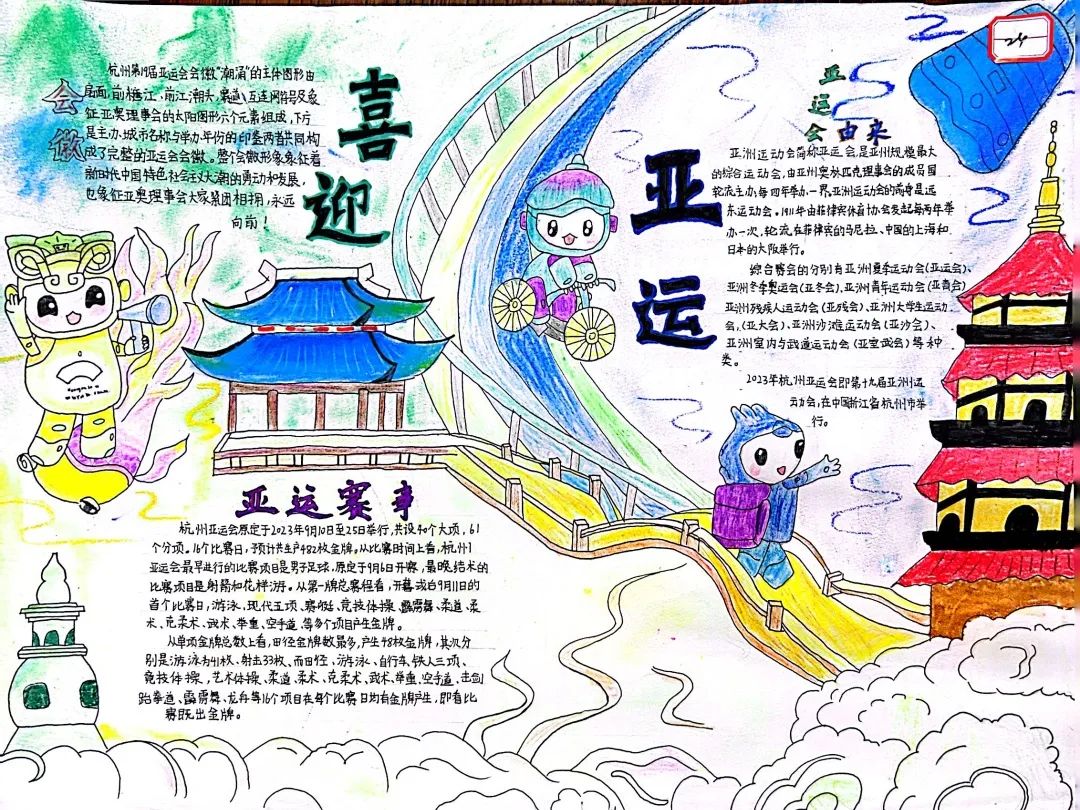 24
喜迎
亚运
会徽
杭州第19届亚运会会徽"潮涌"的主体图形由
扇面、前塘江、前江潮头、赛道、互连网符号及象
征亚奥理事会的太阳图形六个元素组成,下方
是主办城市名称与举办年份的印鉴两者共同构
成了完整的亚运会会徽。整个会徽形象象征着
新时代中国特色社会主义大潮的勇动和发展,
也象征亚奥理事会大家紧团相拥,永远
向前!
亚运会由来
亚洲运动会简称亚运会,是亚州规模最大
的综合运动会,由亚州奥林匹克理事会的成员国
轮流主办,每四年举办一界,亚洲运动会的前身是远
东运动会。1911年由菲律宾体育协会发起每两年举
办一次,轮流在菲律宾的马尼拉、中国的上海和
日本的大阪举行。
综合赛会的分别有亚洲夏季运动会(亚运会)、
亚洲冬季奥运会(亚冬会)、亚洲青年运动会(亚青会)
亚洲残疾人运动会(亚残会)、亚洲大学生运动
会,(亚大会)、亚洲沙滩运动会(亚沙会)、
亚洲室内与武道运动会(亚室武会)等种
类。
2023年杭州亚运会即第十九届亚洲运
动会,在中国浙江省杭州市举
行。
亚运赛事
杭州亚运会原定于2023年9月10日至25日举行,共设40个大项,61
个分项。16个比赛日,预计共生产482枚金牌。从比赛时间上看,杭州
亚运会最早进行的比赛项目是男子足球,原定于9月6日开赛,最晚结术的
比赛项目是射箭和花样游。从第一牌总赛程看,开幕或后9月11日的
首个比赛日,游泳、现代五项、赛艇、竞技体操、霹雳舞、柔道、柔
术、克柔术、武术、举重、空手道、等多个项目产生金牌。
从单项金牌总数上看,田径金牌数最多,产生48枚金牌,其次分
别是游泳为41枚、射击33枚、而田径、游泳、自行车、铁人三项、
竞技体操,艺术体操、柔道、柔术、克柔术、武术、举重、空手道、击剑
跆拳道、霹雳舞、龙舟等16个项目在每个比赛日均有金牌产生,即看比
赛既出金牌。